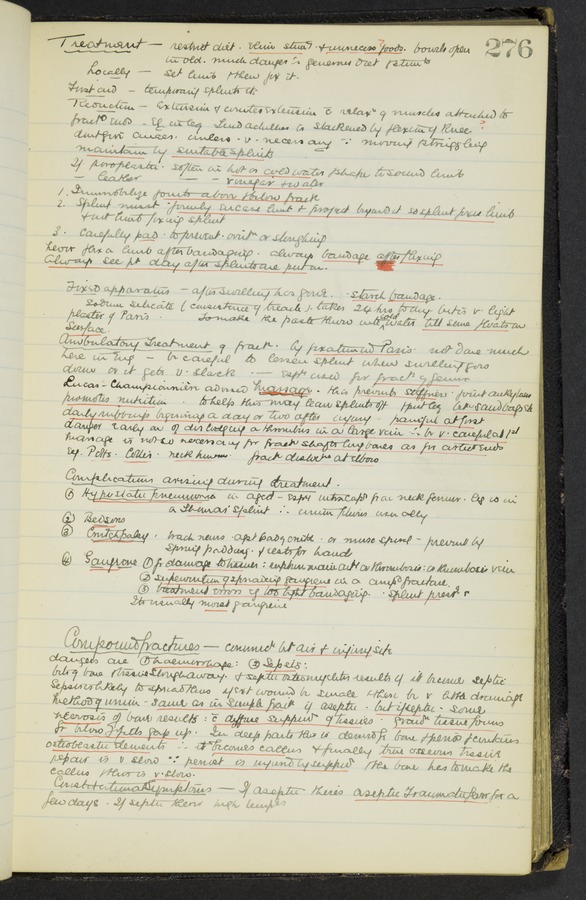 276
Treatment — restrict diet. stim & unnecess foods. bowels open
in old. much danger ∴ generous diet & stim^ts
Locally — set limb & then fix it.
First aid — temporary splints etc
Reduction — Extension & counter extension c̄ relax^n of muscles attached to
fract^d end - eg in leg Tendo achilles is slackened by flexion of knee
don't give anaes. unless v. necessary ∵ moving & struggling
maintain by suitable splints
If poroplastic soften in hot or cold water & shape to sound limb
— leather — — vinegar & water
1. Immobilize joints above & below fract
2. Splint must firmly encase limb & project beyond it so splint fixes limb
& not limb fixing splint
3. Carefully pad to prevent or sloughing
never flex a limb after bandaging. always bandage after flexing
Always see pt day after splints are put on.
Fixed apparatus — after swelling has gone. starch bandage.
Sodium silicate (consistence of treacle) takes 24 hrs to dry but is v light
plaster of Paris. To make the paste throw into cold water till some floats on
surface.
Ambulatory Treatment of fract. by fixation in Paris not done much
here in Eng — be careful to loosen splint when swelling goes
down or it gets v. slack — esp^y used for fract^s of femur
Lucas-Championnière advised massage. this prevents stiffness joint ankylosis
promotes nutrition. to help this may lean splints off & put leg bet sandbags &
daily rubbings beginning a day or two after injury. painful at first
danger early on of dislodging a thrombus in a large vein ∴ be v. careful at 1^st
massage is not so necessary for fract^s shafts long bones as for articr ends
eg. Potts. Colles. neck humerus fract dislocns at elbow
Complications arising during treatment.
① Hypostatic pneumonia in aged - espy intracaps frac neck femur. leg is in
a Thomas' splint ∴ usually
② Bedsores
③ Crutch palsy. brach nerves agst badly made or muso spiral — prevent by
spring padding. & rests for hands
④ Gangrene ① fr damage to tissues: rupture main art or thrombosis: or thrombosis vein
② supervention of spreading gangrene in a comp^d fracture.
③ treatment error eg too tight bandaging. splint press^re
It is usually moist gangrene
Compound fractures — commun^s bet air & injury site
dangers are ① haemorrhage: ② Sepsis:
bits of bone & tissue slough away. & septic osteomyelitis results if it become septic
Sepsis is likely to spread thus if ext wound be small & there be v little drainage
method of union - same as in simple fract if aseptic. but if septic - some
necrosis of bone results: c̄ diffuse suppur^n of tissues. gran^n tissue forms
& fills gap up. In deep parts this is derived fr bone & perios & contains
osteoblastic elements ∴ it becomes callus & finally true osseous tissue
repair is v slow ∵ periost is injured by suppur^n & the bone has to make the
callus & this is v. slow.
Constitutional Symptoms — If aseptic there's aseptic traumatic fever for a
few days. If septic there high temps